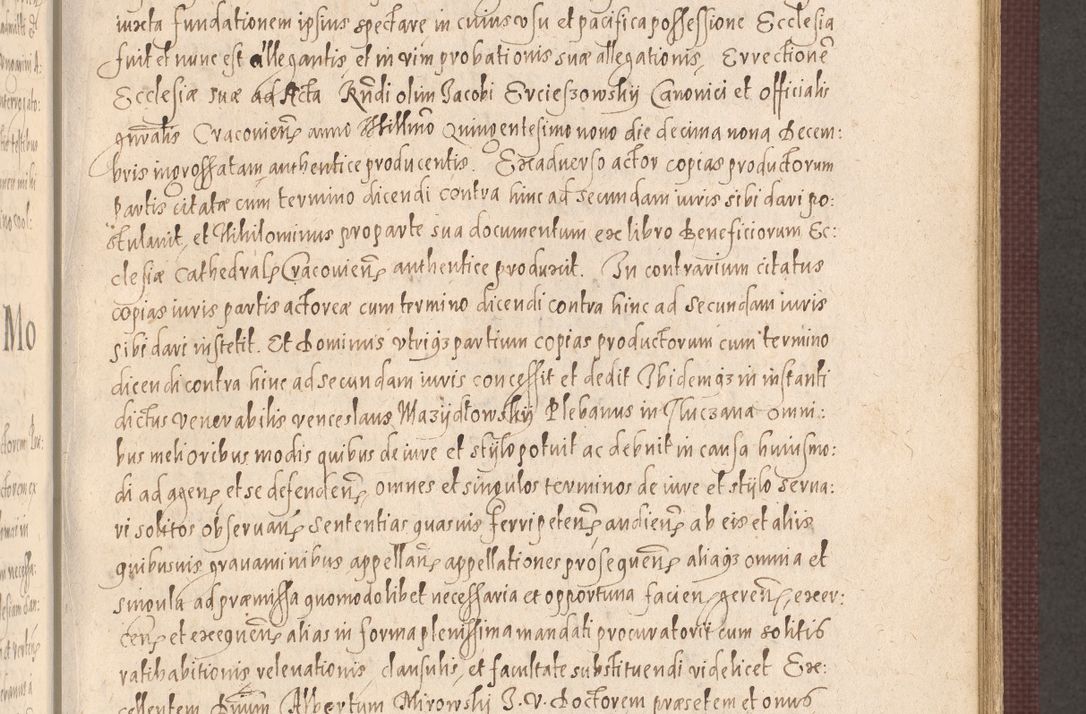 iuxta fundationem ipsius spectare in cuius usu et pacifica possessione Ecclesia
fuit et nunc est allegantis et in vim probationis suæ allegationis, Errectionē
Ecclesiæ suæ ad Acta Rn̄di olim Jacobi Ercieszowskij Canonici et officialis
gnr̄alis Cracovien̄ anno Millm̄o Quingentesimo nono die decima nona Decem:
bris ingrossatam authentice producentis. Ex adverso actor copias productorum
partis citatæ cum termino dicendi contra hinc ad secundam iuris sibi dari po:
stulavit, et Nihilominus pro parte sua documentum ex libro Beneficiorum Ec:
clesiæ Cathedral Cracovien̄ authentice produxit. In contrarium citatus
copias iuris partis actoreæ cum termino dicendi contra hinc ad secundam iuris
sibi dari institit. Et Dominus utriqз partium copias productorum cum termino
dicendi contra hinc ad secundam iuris concessit et dedit Ibidemqз in instanti
dictus venerabilis venceslaus Plebanus in omni:
bus melioribus modis quibus de iure et stylo potuit ac debuit in causa huiusmo:
di ad agen et se defenden̄ omnes et singulos terminos de iure et stijlo serva:
ri solitos observan̄ sententias quasvis ferri peten̄ audien̄ ab eis et aliis
quibusvis gravaminibus appellan̄ appellationes prosequen̄ aliaqз omnia et
singula ad præmissa quomodolibet necessaria et opportuna facien geren̄, exer:
cen̄ et exequen̄ alias in forma plenissima mandati procuratorii cum solitis
ratihabitionis relevationis clausulis, et facultate substituendi videlicet Ex:
cellentem Dn̄um Albertum Mirowskij J. V. Doctorem præsetem et onus
Mo